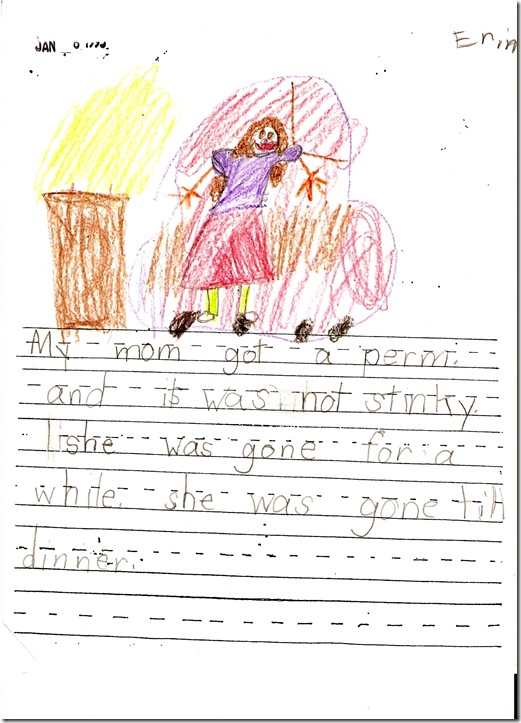 Erin
JAN
My mom got a perm.
and it was not stinky.
she was gone for a
while. she was gone till
dinner.